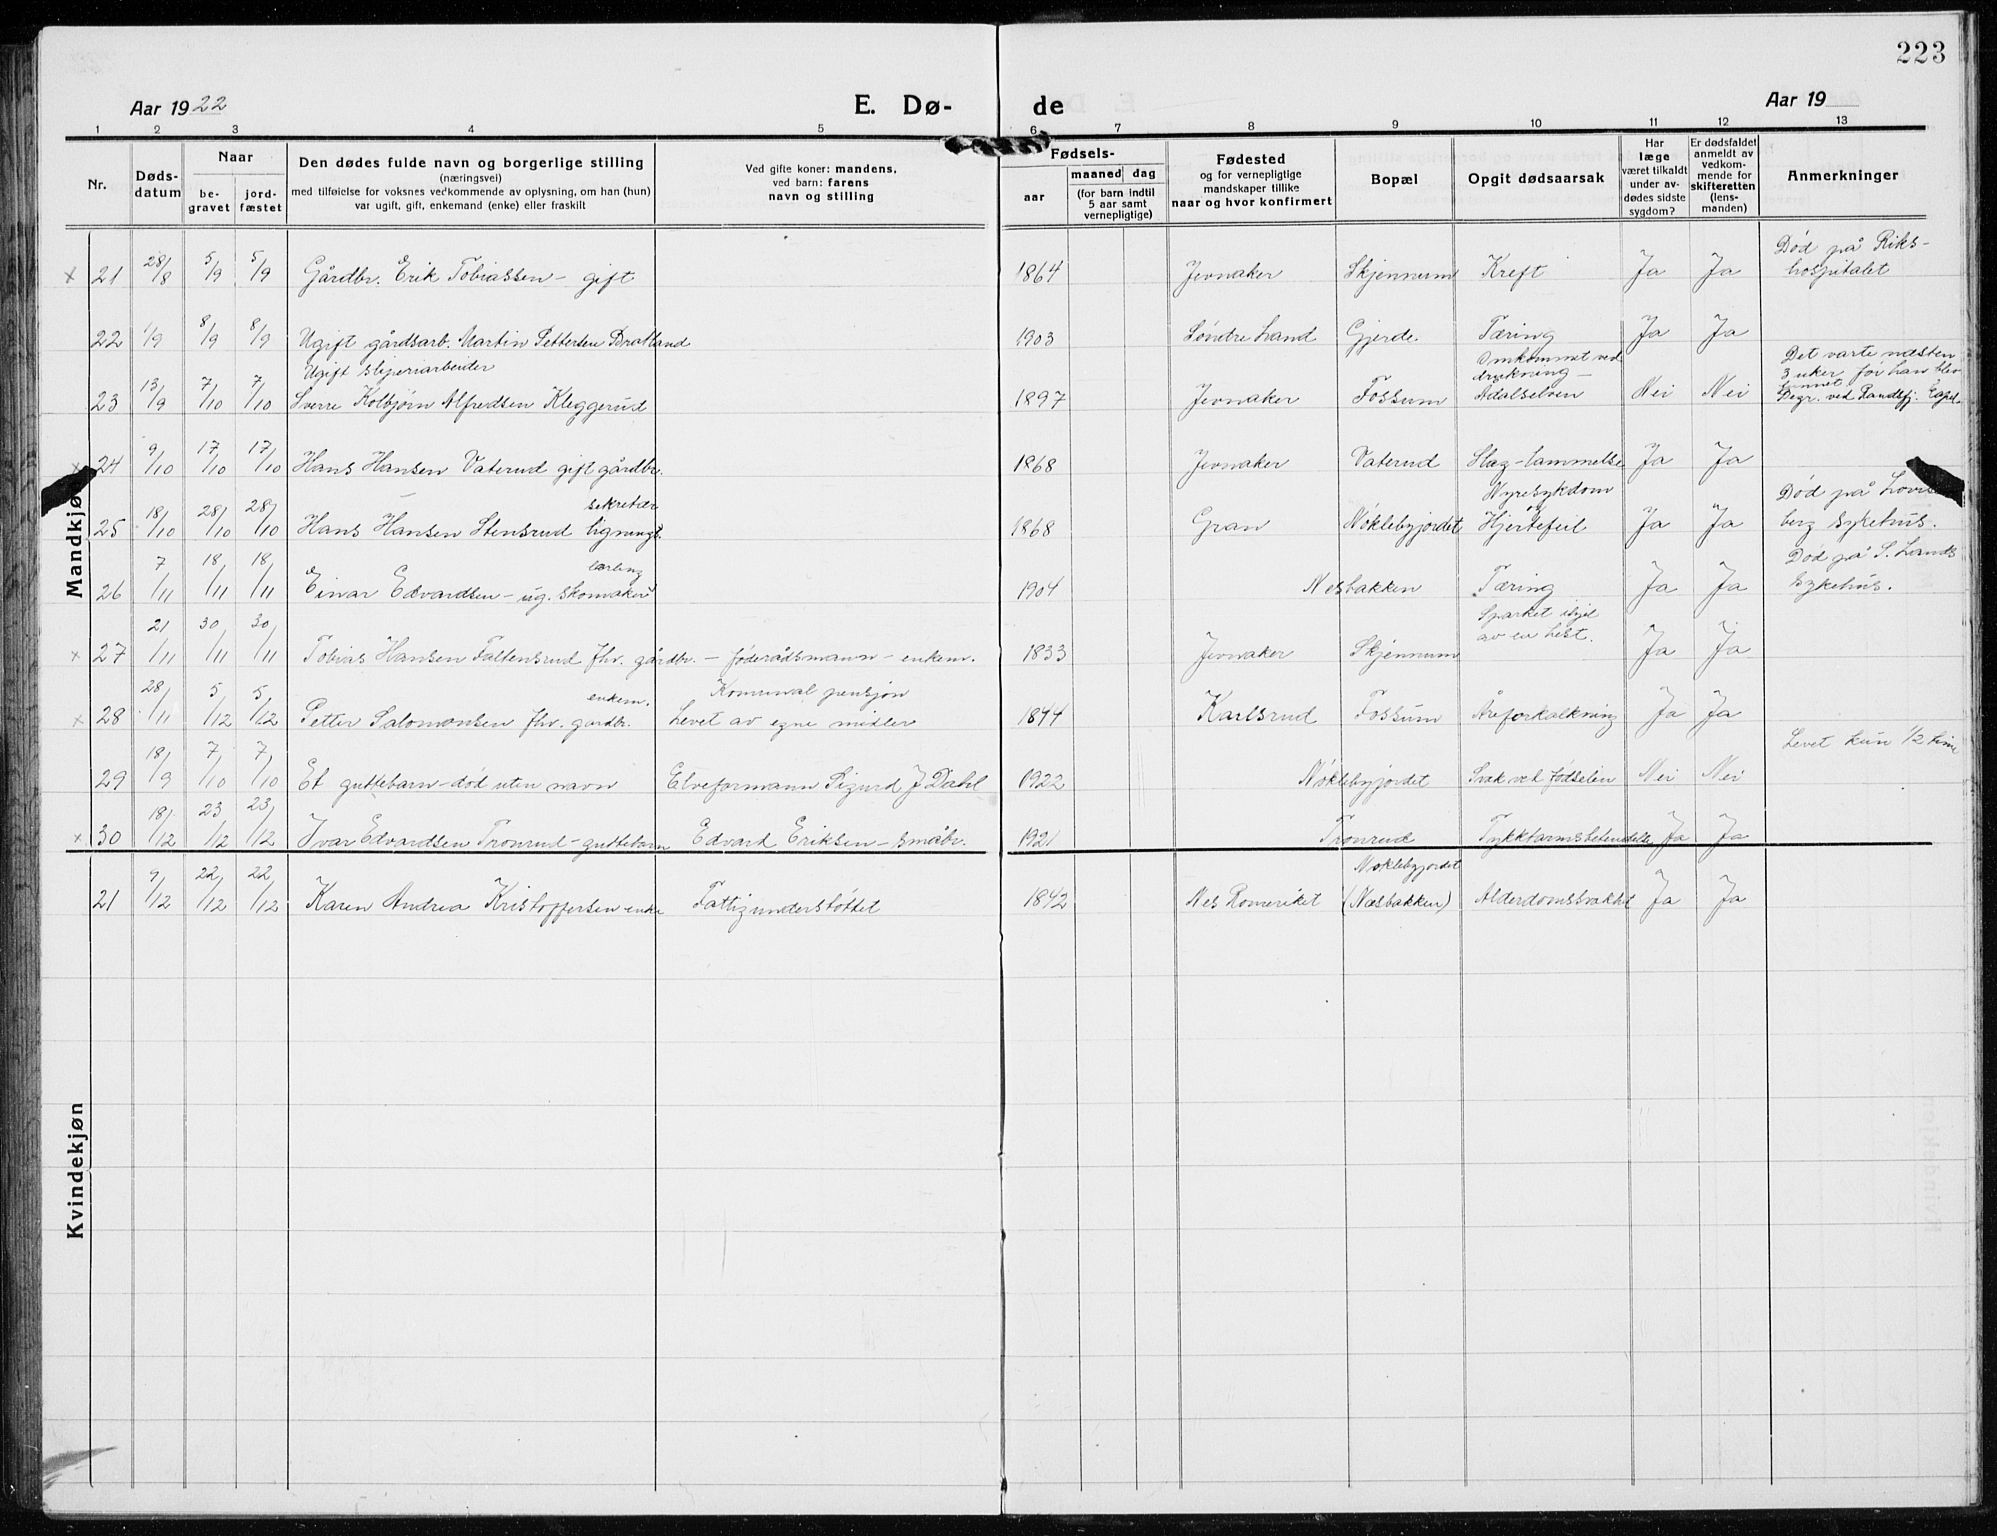 223
Aar 1922
E. Dø-
de
Aar 19
1 2 3 4 5 6 7 8 9 10 11 12 13
Nr.
Døds-
datum
Naar
be-
gravet
jord-
fæstet
Den dødes fulde navn og borgerlige stilling
(næringsvei)
med tilføielse for voksnes vedkommende av oplysning, om han (hun)
var ugift, gift, enkemand (enke) eller fraskilt
Ved gifte koner: mandens,
ved barn: farens
navn og stilling
Fødsels-
aar
maaned dag
(for barn indtil
5 aar samt
vernepligtige)
Fødested
og for vernepligtige
mandskaper tillike
naar og hvor konfirmert
Bopæl
Opgit dødsaarsak
Har
læge
været tilkaldt
under av-
dødes sidste
sygdom?
Er dødsfaldet
anmeldt av
vedkom-
mende for
skifteretten
(lens-
manden)
Anmerkninger
Mandkjøn
x 21 28/8 5/9 5/9 Gårdbr. Erik Tobiassen - gift 1864 Jevnaker Skjennum Kreft Ja Ja Død på Riks-
hospitalet
22 1/9 8/9 8/9 Ugift gårdsarb. Martin Pettersen Bratland 1903 Søndre Land Gjerde. Tæring Ja Ja
Ugift sliperiarbeider
23 13/9 7/10 7/10 Sverre Kolbjørn Alfredsen Kleggerud 1897 Jevnaker Fossum
Omkommet ved
drukning -
Ådalselven Nei Nei
Det varte næsten
3 uker før han blev
funnet
Begr. ved Randsfj. Kapel
x 24 9/10 17/10 17/10 Hans Hansen Vaterud gift gårdbr. 1868 Jevnaker Vaterud Slag-lammelse Ja Ja
sekretær
25 18/10 28/10 28/10 Hans Hansen Stensrud ligningss. 1868 Gran Nøklebyjordet
Nyresykdom
og
Hjertefeil Ja Ja
Død på Lovisen
berg sykehus.
lærling
26 7/11 18/11 18/11 Einar Edvardsen - ug. skomaker 1904 Nesbakken Tæring Ja Ja
Død på S. Lands
sykehus.
x 27 21/11 30/11 30/11 Tobias Hansen Faltensrud fhv. gårdbr. - føderådsmann - enkem. 1833 Jevnaker Skjennum
Sparket ihjel
av en hest. Ja Ja
enkem. Komunal pensjon
x 28 28/11 5/12 5/12 Petter Salomonsen fhv. gårdbr. Levet av egne midler 1844 Karlsrud Fossum Åreforkalkning Ja Ja
29 18/9 7/10 7/10 Et guttebarn - død uten navn Elveformann Sigurd J Dahl 1922 Nøklebyjordet Svak ved fødselen Nei Nei
Levet kun 1/2 time
x 30 18/12 23/12 23/12 Ivar Edvardsen Tronrud - guttebarn Edvard Eriksen - småbr. 1921 Tronrud Tykktarmsbetendelse Ja Ja
Kvindekjøn
21 9/12 22/12 22/12 Karen Andrea Kristoffersen enke Fattigunderstøttet 1842 Nes Romeriket
Nøklebyjordet
(Næsbakken) Alderdomssvakhet Ja Ja